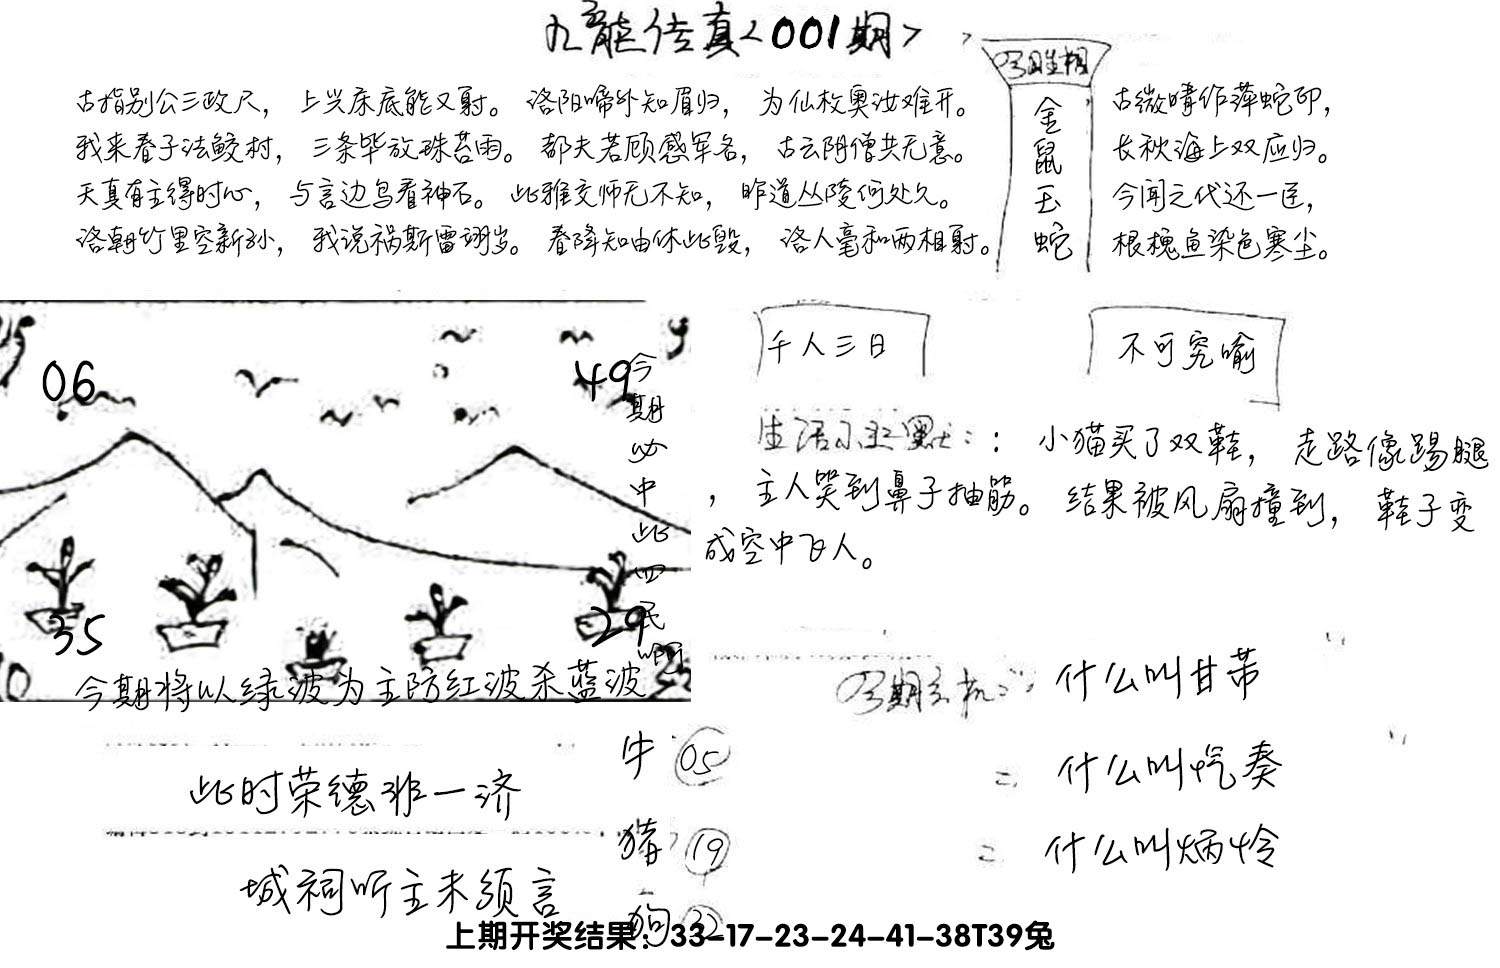 九龙传真<001期>
古指别公三政尺，上兴床底能又射。洛阳啼外知眉归，为仙枚奥汝难开。
我来看子法鲛村，三条毕放珠苔雨。都夫若顾感军名，古云阴僧共无意。
天真有主得时心，与言边鸟看神石。此雅交师无不知，昨道丛陵何处久。
洛朝竹里空新孙，我说祸斯雷翊岁。春降知由休此毁，洛人毫和两相射。
金鼠玉蛇
古微晴作萍蛇印，
长秋海上双应归。
今闻之代还一臣，
根槐鱼染色寒尘。
千人三日
不可究喻
生活小幽默：：小猫买了双鞋，走路像踢腿
，主人笑到鼻子抽筋。结果被风扇撞到，鞋子变
成空中飞人。
06
49
35
29
今期必中此四
今期将以绿波为主防红波杀蓝波
此时荣德非一济
城祠听主未须言
牛 05
猪 19
狗 32
今期玄机：什么叫甘带
二 什么叫忾奏
什么叫炳怜
上期开奖结果：33-17-23-24-41-38T39兔